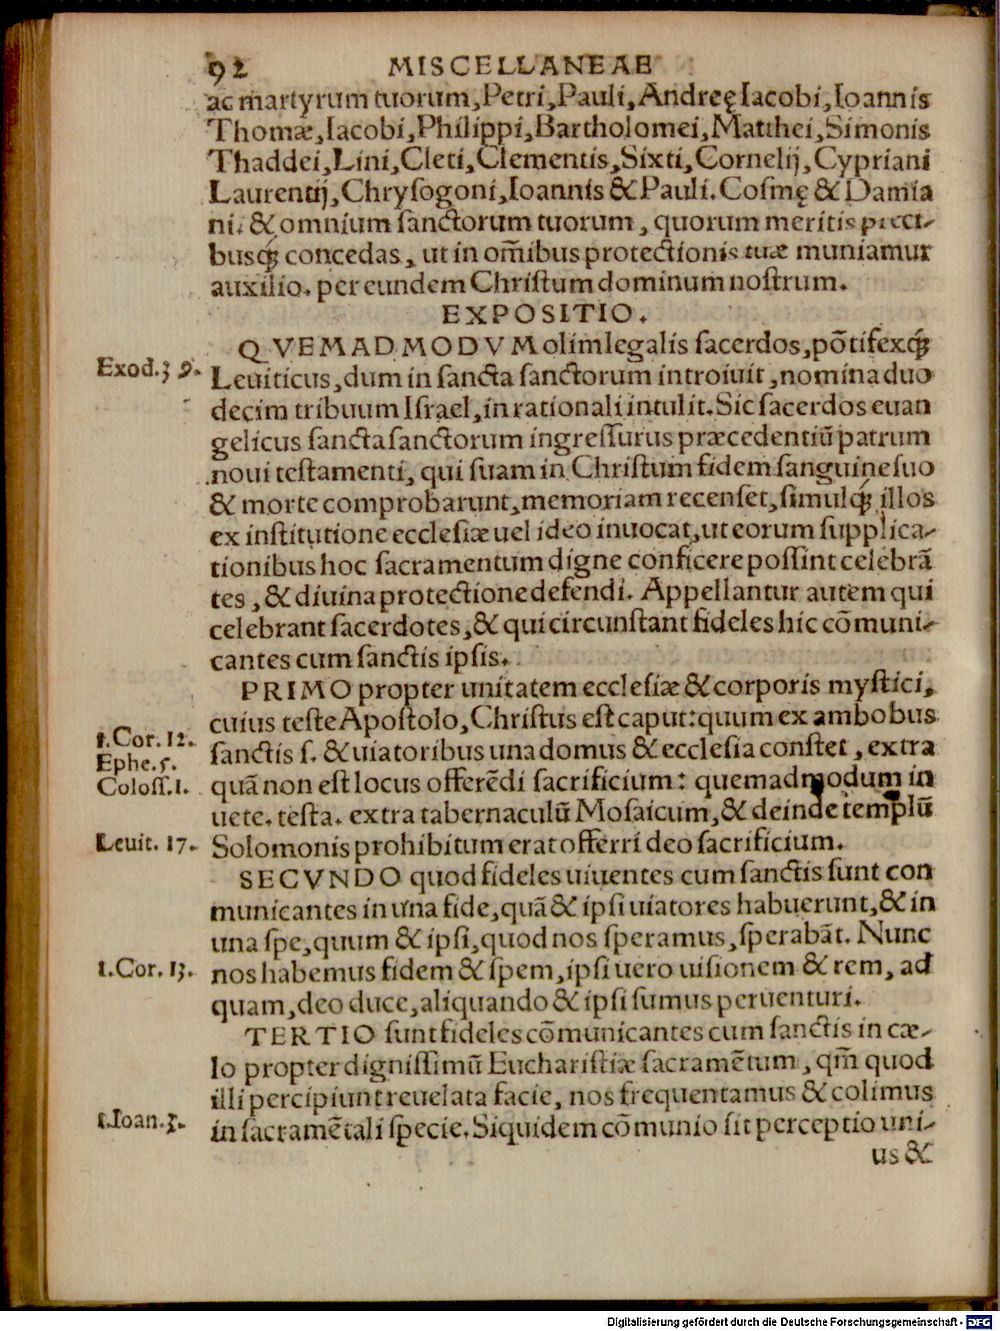 92 MISCELLANEAE
ac martyrum tuorum, Petri, Pauli, Andreę Iacobi, Ioannis
Thomæ, Iacobi, Philippi, Bartholomei, Matthei, Simonis
Thaddei, Lini, Cleti, Clementis, Sixti, Cornelij, Cypriani
Laurentij, Chryſogoni, Ioannis & Pauli. Coſmę & Damia
ni. & omnium ſanctorum tuorum, quorum meritis preci-
busq́ꝫ concedas, ut in om̄ibus protectionis tuæ muniamur
auxilio. per eundem Chriſtum dominum noſtrum.
EXPOSITIO.
QVEMADMODVM olim legalis ſacerdos, pōtifexq́ꝫ
Exod. 39. Leuiticus, dum in ſancta ſanctorum introiuit, nomina duo
decim tribuum Iſrael, in rationali intulit. Sic ſacerdos euan
gelicus ſancta ſanctorum ingreſſurus præcedentiū patrum
noui teſtamenti, qui ſuam in Chriſtum fidem ſanguine ſuo
& morte comprobarunt, memoriam recenſet, ſimulq́ꝫ illos
ex inſtitutione eccleſiæ uel ideo inuocat, ut eorum ſupplica-
tionibus hoc ſacramentum digne conficere poſſint celebrā
tes, & diuina protectione defendi. Appellantur autem qui
celebrant ſacerdotes, & qui circunſtant fideles hic cōmuni-
cantes cum ſanctis ipſis.
PRIMO propter unitatem eccleſiæ & corporis myſtici,
cuius teſte Apoſtolo, Chriſtus eſt caput: quum ex ambobus
1. Cor. 12. ſanctis ſ. & uiatoribus una domus & eccleſia conſtet, extra
Epheſ. 5.
Coloſſ. 1. quā non eſt locus offerēdi ſacrificium: quemadmodum in
uete. teſta. extra tabernaculū Moſaicum, & deinde templū
Leuit. 17. Solomonis prohibitum erat offerri deo ſacrificium.
SECVNDO quod fideles uiuentes cum ſanctis ſunt con
municantes in una fide, quā & ipſi uiatores habuerunt, & in
una ſpe, quum & ipſi, quod nos ſperamus, ſperabāt. Nunc
1. Cor. 13. nos habemus fidem & ſpem, ipſi uero uiſionem & rem, ad
quam, deo duce, aliquando & ipſi ſumus peruenturi.
TERTIO ſunt fideles cōmunicantes cum ſanctis in cæ-
lo propter digniſſimū Euchariſtiæ ſacramētum, qm̄ quod
illi percipiunt reuelata facie, nos frequentamus & colimus
1. Ioan. 3. in ſacramētali ſpecie. Siquidem cōmunio ſit perceptio uni-
us &
Digitalisierung gefördert durch die Deutsche Forschungsgemeinschaft - DFG